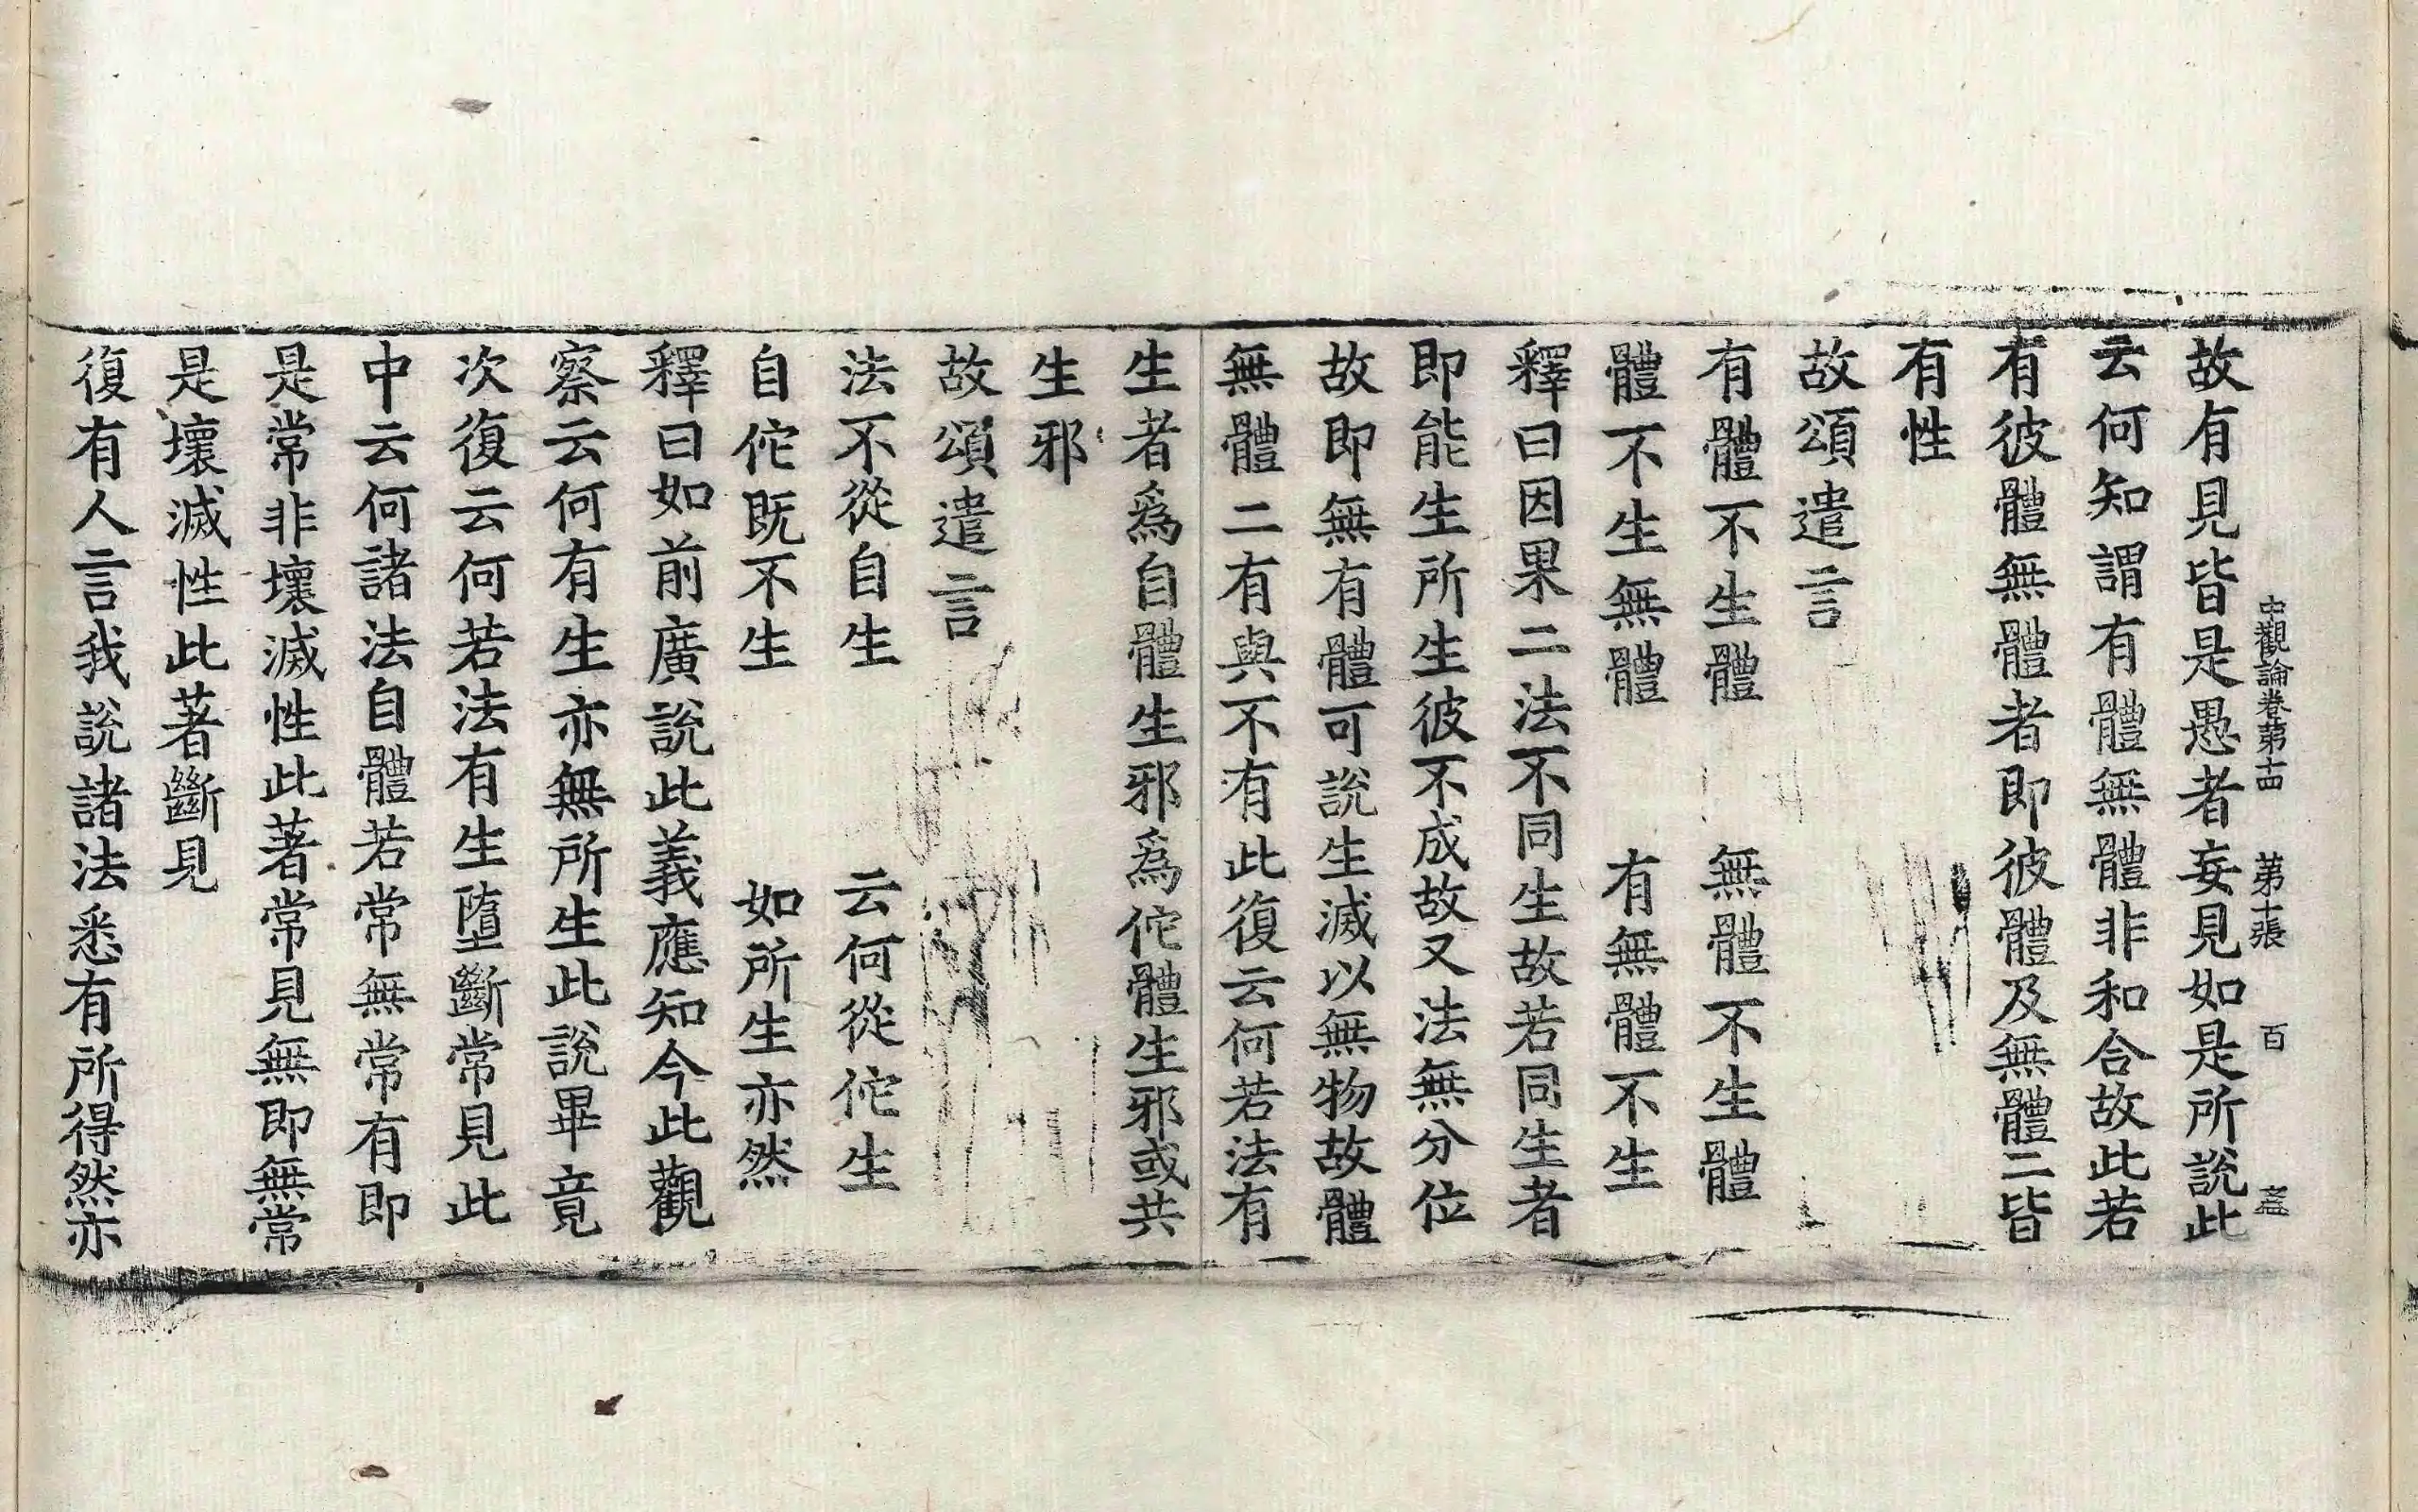 中觀論卷第十四 第十張 百
故有見皆是愚者妄見如是所說此
云何知謂有體無體非和合故此若
有彼體無體者即彼體及無體二皆
有性
故頌遣言
有體不生體 無體不生體
體不生無體 有無體不生
釋曰因果二法不同生故若同生者
即能生所生彼不成故又法無分位
故即無有體可說生滅以無物故體
無體二有與不有此復云何若法有
生者爲自體生邪爲佗體生邪或共
生邪
故頌遣言
法不從自生 云何從佗生
自佗既不生 如所生亦然
釋曰如前廣說此義應知今此觀
察云何有生亦無所生此說畢竟
次復云何若法有生墮斷常見此
中云何諸法自體若常無常有即
是常非壞滅性此著常見無即無常
是壞滅性此著斷見
復有人言我說諸法悉有所得然亦